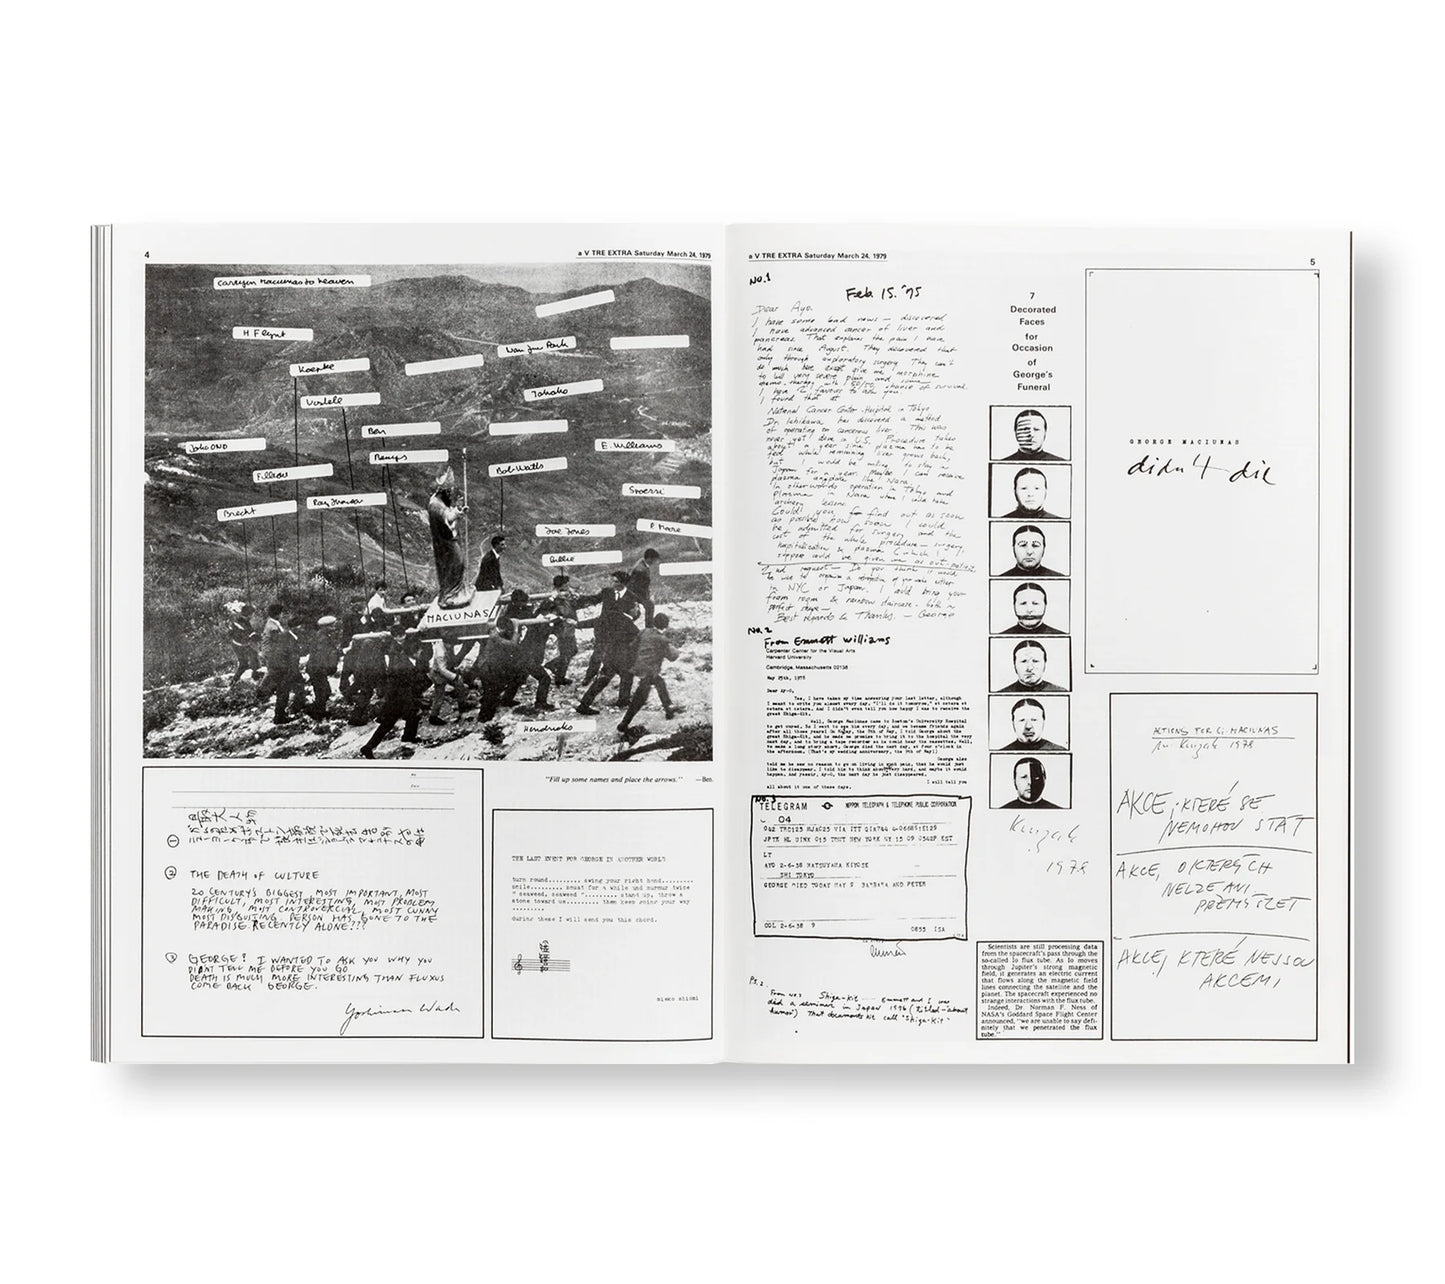 4
a V TRE EXTRA Saturday March 24, 1979
Carrying Maciunas to heaven
H Flynt
Nam June Paik
Koepke
Vostell
Takako
Ben
Yoko ONO
E. Williams
Beuys
Filliou
Bob Watts
Spoerri
Brecht
Ray Johnson
Joe Jones
P. Moore
Billie
MACIUNAS
Hendricks
"Fill up some names and place the arrows." —Ben.
①
② THE DEATH OF CULTURE
20 CENTURY'S BIGGEST, MOST IMPORTANT, MOST
DIFFICULT, MOST INTERESTING, MOST PROBLEM
MAKING, MOST CONTROVERCIAL, MOST CUNNY
MOST DISGUSTING PERSON HAS GONE TO THE
PARADISE RECENTLY ALONE???
③ GEORGE! I WANTED TO ASK YOU WHY YOU
DIDN'T TELL ME BEFORE YOU GO
DEATH IS MUCH MORE INTERESTING THAN FLUXUS
COME BACK GEORGE.
Yoshimasa Wada
THE LAST EVENT FOR GEORGE IN ANOTHER WORLD
turn round......... swing your right hand.........
smile......... squat for a while and murmur twice
" seaweed, seaweed "......... stand up, throw a
stone toward us......... then keep going your way
.........
during these I will send you this chord.
mieko shiomi
a V TRE EXTRA Saturday March 24, 1979
5
No. 1
Feb. 15. '75
Dear Ayo,
I have some bad news — discovered
I have advanced cancer of liver and
pancreas. That explains the pain I have
had since August. They discovered that
only through exploratory surgery. They can't
do much here except give me morphine
I have 2 favours to ask you.
I found that at
National Cancer Center Hospital in Tokyo
Dr. Ichikawa has discovered a method
of operating on cancerous liver. This was
never yet done in U.S. Procedure takes
about a year since plasma has to be
fed while remaining liver grows back,
but I would be willing to stay in
Japan for a year. Maybe I can receive
plasma anyplace like Nara.
In other words operation in Tokyo and
Plasma in Nara where I could have
archery lessons.
Could you find out as soon
as possible how soon I could
be admitted for surgery and the
cost of the whole procedure — surgery,
hospitalization & plasma (which I
suppose could be given me as out-patient
in NYC or Japan. I could bring you
perfect shape —
Best regards & Thanks. — George
No. 2
From Emmett Williams
Carpenter Center for the Visual Arts
Harvard University
Cambridge, Massachusetts 02138
May 25th, 1978
Dear Ay-O,
Yes, I have taken my time answering your last letter, although
I meant to write you almost every day. "I'll do it tomorrow," et cetera et
cetera et cetera. And I didn't even tell you how happy I was to receive the
great Shiga-Kit.
Well, George Maciunas came to Boston's University Hospital
to get cured. So I went to see him every day, and we became friends again
after all those years! On Monday, the 7th of May, I told George about the
great Shiga-Kit, and he made me promise to bring it to the hospital the very
next day, and to bring a tape recorder so he could hear the cassettes. Well,
to make a long story short, George died the next day, at four o'clock in
the afternoon. (That's my wedding anniversary, the 9th of May!)
George also
told me he saw no reason to go on living in such pain, that he would just
like to disappear. I told him to think about it very hard, and maybe it would
happen. And yessir, Ay-O, the next day he just disappeared.
I will tell you
all about it one of these days.
No. 3
TELEGRAM NIPPON TELEGRAPH & TELEPHONE PUBLIC CORPORATION
04
LT
AYO 2-6-38 MATSUYAMA KIYOSE
SHI TOKYO
GEORGE DIED TODAY MAY 9 BARBARA AND PETER
COL 2-6-38 9
0855 ISA
P.S. 2.
From No 3 Shiga-kit ---- Emmett and I was
did a seminar in Japan 1976 (titled "about
humor") That documents we call "Shiga-Kit"
7
Decorated
Faces
for
Occasion
of
George's
Funeral
Knizak
1978
Scientists are still processing data
from the spacecraft's pass through the
so-called Io flux tube. As Io moves
through Jupiter's strong magnetic
field, it generates an electric current
that flows along the magnetic field
lines connecting the satellite and the
planet. The spacecraft experienced no
strange interactions with the flux tube.
Indeed, Dr. Norman F. Ness of
NASA's Goddard Space Flight Center
announced, "we are unable to say defi-
nitely that we penetrated the flux
tube."
GEORGE MACIUNAS
didn't die
ACTIONS FOR G. MACIUNAS
M. Knizak 1978
AKCE, KTERÉ SE
NEMOHOU STÁT
AKCE, O KTERÝCH
NELZE ANI
PŘEMÝŠLET
AKCE, KTERÉ NEJSOU
AKCEMI